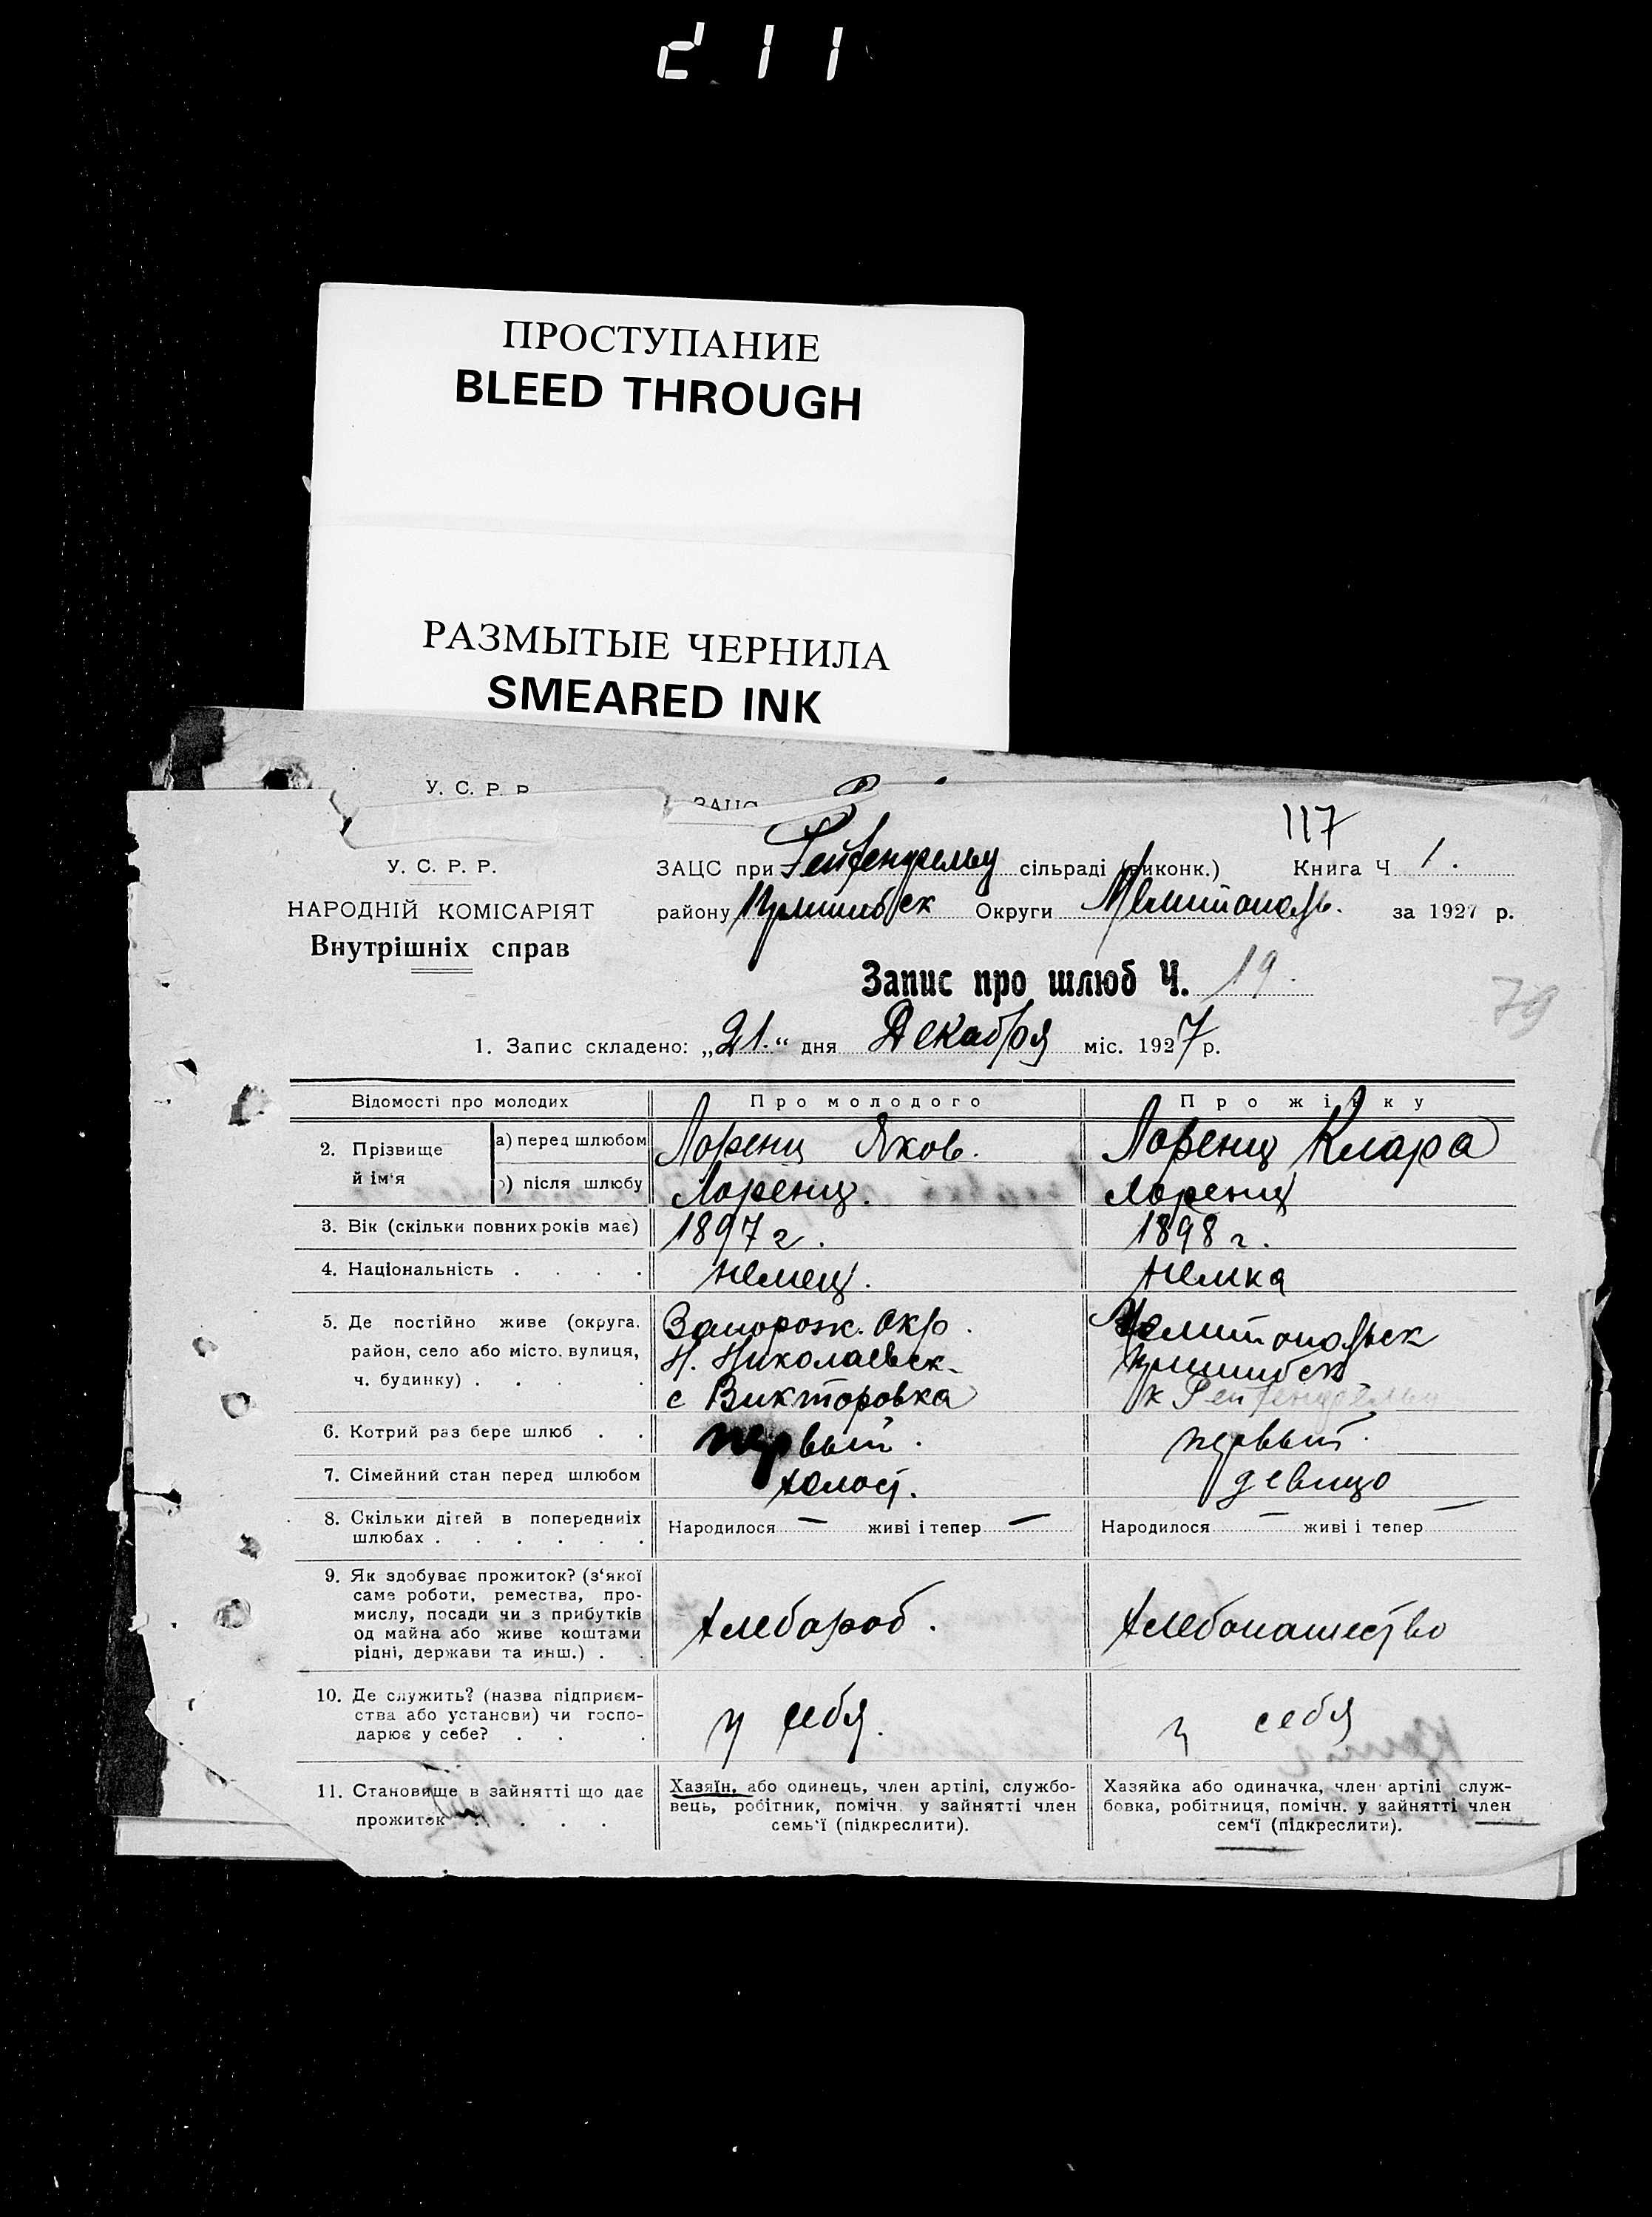 211
ПРОСТУПАНИЕ
BLEED THROUGH
РАЗМЫТЫЕ ЧЕРНИЛА
SMEARED INK
У. С. Р. Р.
ЗАЦС
117
У. С. Р. Р.
ЗАЦС при Рейхенфельд сільраді (виконк.) Книга Ч 1.
НАРОДНІЙ КОМІСАРІЯТ
району Пришибск Округи Мелитополь. за 1927 р.
Внутрішніх справ
Запис про шлюб Ч. 19.
79
1. Запис складено: „21.“ дня Декабря міс. 1927 р.
Відомості про молодих Про молодого Про жінку
2. Прізвище й ім'я а) перед шлюбом Лоренц Яков. Лоренц Клара
б) після шлюбу Лоренц. Лоренц
3. Вік (скільки повних років має) 1897 г. 1898 г.
4. Національність . . . . немец. немка
5. Де постійно живе (округа, Запорож. Окр. Мелитопольск
район, село або місто, вулиця, Н. Николаевск. Пришибск
ч. будинку) . . . . с Викторовка к Рейхенфельд
6. Котрий раз бере шлюб . . первый. первый.
7. Сімейний стан перед шлюбом холост. девица
8. Скільки дітей в попередніх Народилося — живі і тепер — Народилося — живі і тепер —
шлюбах . . . . . .
9. Як здобуває прожиток? (з'якої
саме роботи, ремества, про-
мислу, посади чи з прибутків хлебороб. хлебопашество
од майна або живе коштами
рідні, держави та инш.) . .
10. Де служить? (назва підприєм-
ства або установи) чи госпо- у себя. у себя
дарює у себе? . . .
11. Становище в зайнятті що дає Хазяїн, або одинець, член артілі, службо- Хазяйка або одиначка, член артілі служ-
прожиток . . . . вець, робітник, помічн. у зайнятті член бовка, робітниця, помічн. у зайнятті член
семь'ї (підкреслити). сем'ї (підкреслити).